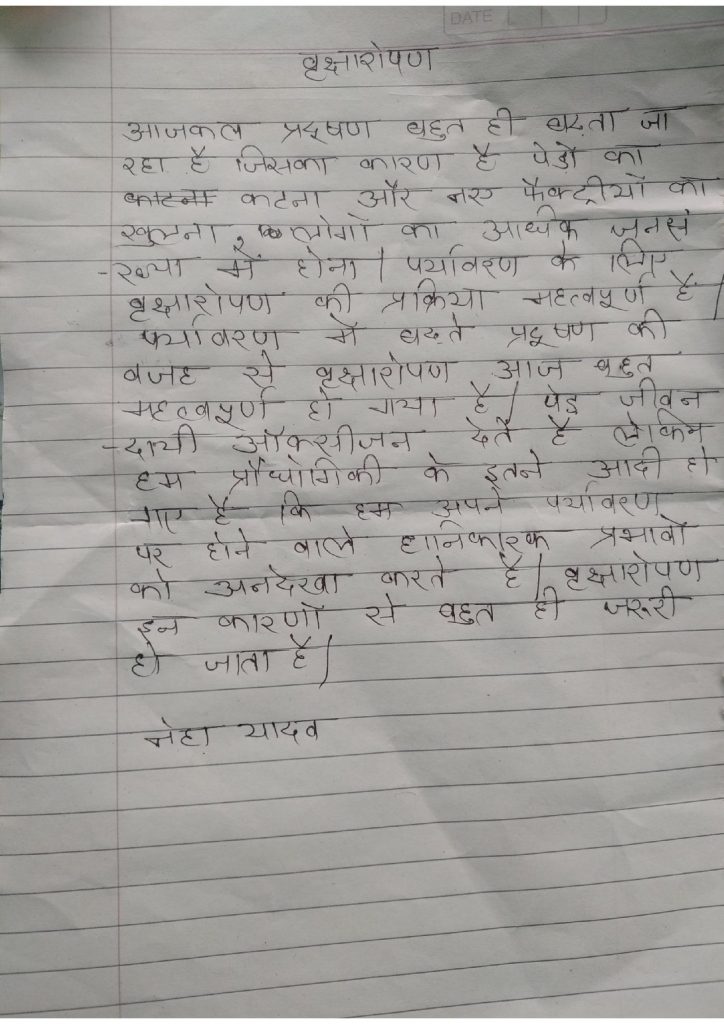 DATE
वृक्षारोपण
आजकल प्रदूषण बहुत ही बढ़ता जा
रहा है जिसका कारण है पेड़ों का
काटना कटना और नए फैक्ट्रीयों का
खुलना, लोगों का अधिक जनसं
-ख्या में होना। पर्यावरण के लिए
वृक्षारोपण की प्रक्रिया महत्वपूर्ण है।
पर्यावरण में बढ़ते प्रदूषण की
वजह से वृक्षारोपण आज बहुत
महत्वपूर्ण हो गया है। पेड़ जीवन
-दायी ऑक्सीजन देते है लेकिन
हम प्रौधोगिकी के इतने आदी हो
गए है कि हम अपने पर्यावरण
पर होने वाले हानिकारक प्रभावों
को अनदेखा करते है। वृक्षारोपण
इन कारणों से बहुत ही जरूरी
हो जाता है।
नेहा यादव